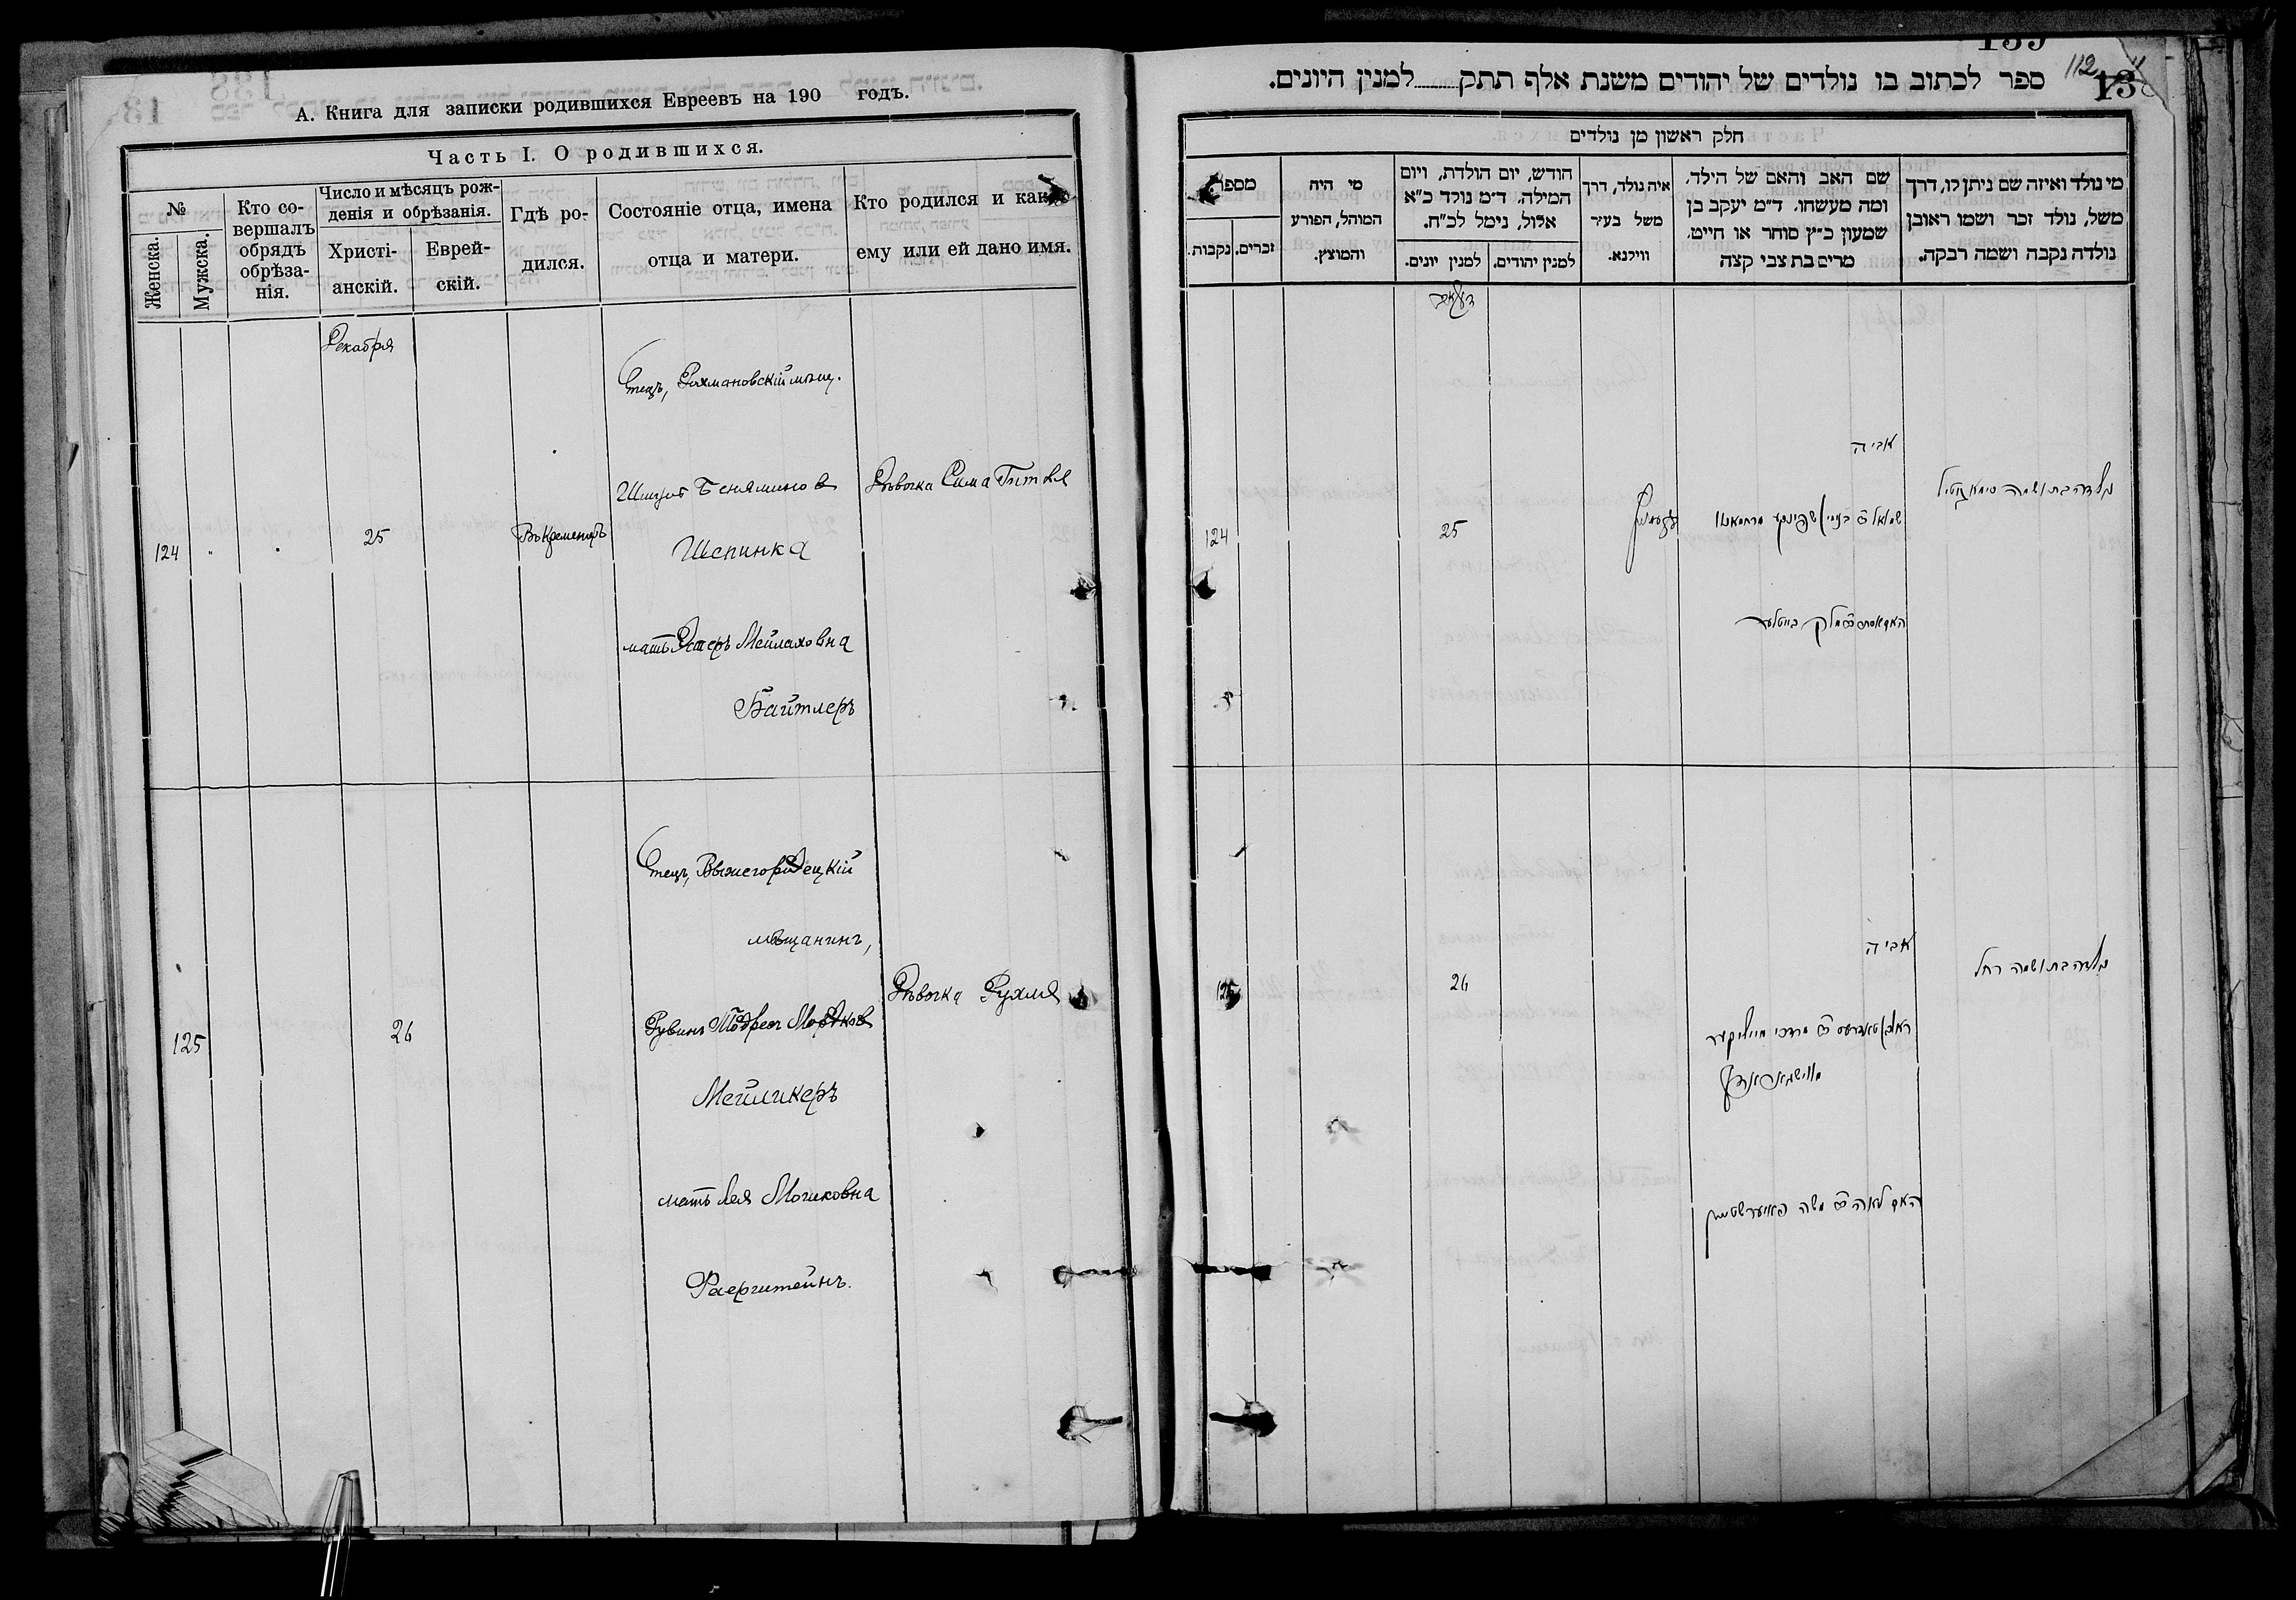 А. Книга для записки родившихся Евреевъ на 190 годъ.
Часть I. О родившихся.
№
Женска.
Мужска.
Кто со-
вершалъ
обрядъ
обрѣза-
нія.
Число и мѣсяцъ рож-
денія и обрѣзанія.
Христі-
анскій.
Еврей-
скій.
Гдѣ ро-
дился.
Состояніе отца, имена
отца и матери.
Кто родился и какое
ему или ей дано имя.
Декабря
124
25
Въ Кременцѣ
Отецъ, Рахмановскій мѣщ.
Беняминов
Шепинка
мать Эстеръ Мейлаховна
Байтлеръ
Дѣвочка Сима Гитля
125
26
Отецъ, Вышегородецкій
мѣщанинъ,
Рувинъ Тодрес Мордков
Мейликеръ
мать Лея Мошковна
Фаерштейнъ.
Дѣвочка Рухля
139
112
ספר לכתוב בו נולדים של יהודים משנת אלף תתק........למנין היונים.
חלק ראשון מן נולדים
מי נולד ואיזה שם ניתן לו, דרך
משל, נולד זכר ושמו ראובן
נולדה נקבה ושמה רבקה.
שם האב והאם של הילד,
ומה מעשהו. ד״מ יעקב בן
שמעון כ״ץ סוחר או חייט.
מרים בת צבי קצה
איה נולד, דרך
משל בעיר
ווילנא.
חודש, יום הולדת, ויום
המילה. ד״מ נולד כ״א
אלול, נימל לכ״ח.
למנין יהודים.
למנין יונים.
מי היה
המוהל, הפורע
והמוצץ.
מספר
זכרים.
נקבות.
124
25
אביה
נולדה בת ושמה סימא גיטיל
125
26
אביה
נולדה בת ושמה רחל
האם לאה משה פאיערשטיין